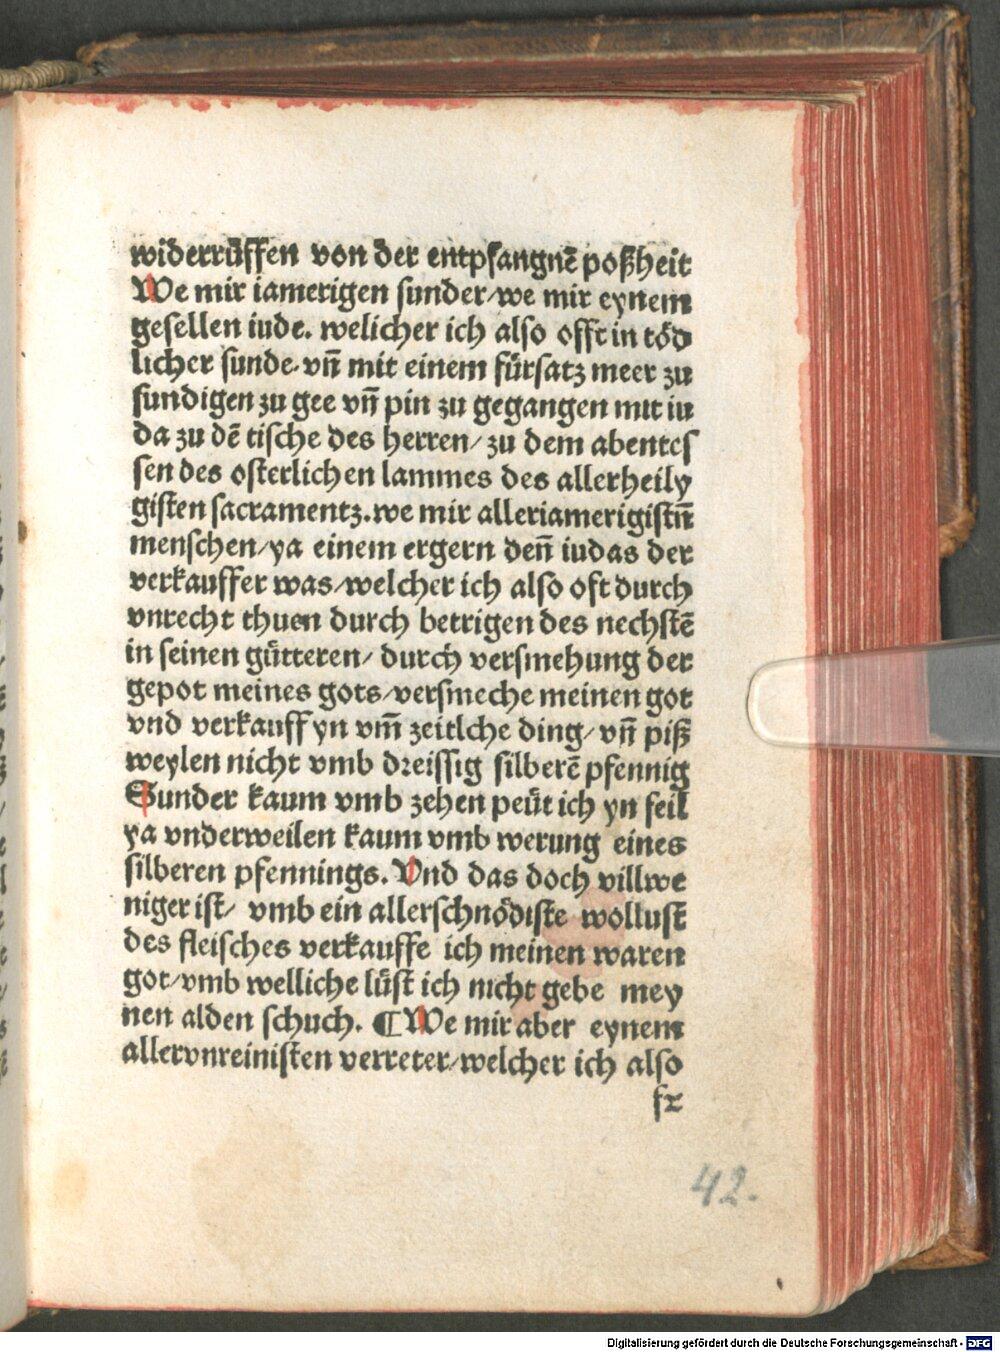 widerrüffen von der entpfangnẽ poßheit
We mir iamerigen sunder/we mir eynem
gesellen iude. welicher ich also offt in töd
licher sunde. vñ mit einem fürsatz meer zu
sundigen zu gee vñ pin zu gegangen mit iu
da zu dẽ tische des herren/ zu dem abentes
sen des osterlichen lammes des allerheily
gisten sacramentz.we mir alleriamerigistñ
menschen/ya einem ergern deñ iudas der
verkauffer was/welcher ich also oft durch
vnrecht thuen durch betrigen des nechstẽ
in seinen gütteren/ durch versmehung der
gepot meines gots/versmeche meinen got
vnd verkauff yn vm̃ zeitlche ding/ vñ piß
weylen nicht vmb dreissig silberẽ pfennig
Sunder kaum vmb zehen peüt ich yn feil
ya vnderweilen kaum vmb werung eines
silberen pfennings. Vnd das doch villwe
niger ist/ vmb ein allerschnödiste wollust
des fleisches verkauffe ich meinen waren
got/vmb welliche lüst ich nicht gebe mey
nen alden schuch. ¶We mir aber eynem
allervnreinisten verreter/welcher ich also
fr
42.
Digitalisierung gefördert durch die Deutsche Forschungsgemeinschaft - DFG